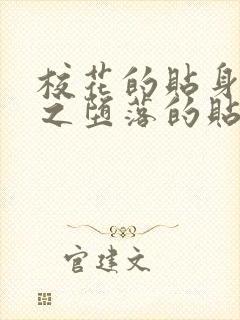 校花的贴身
之堕落的贴
官建文